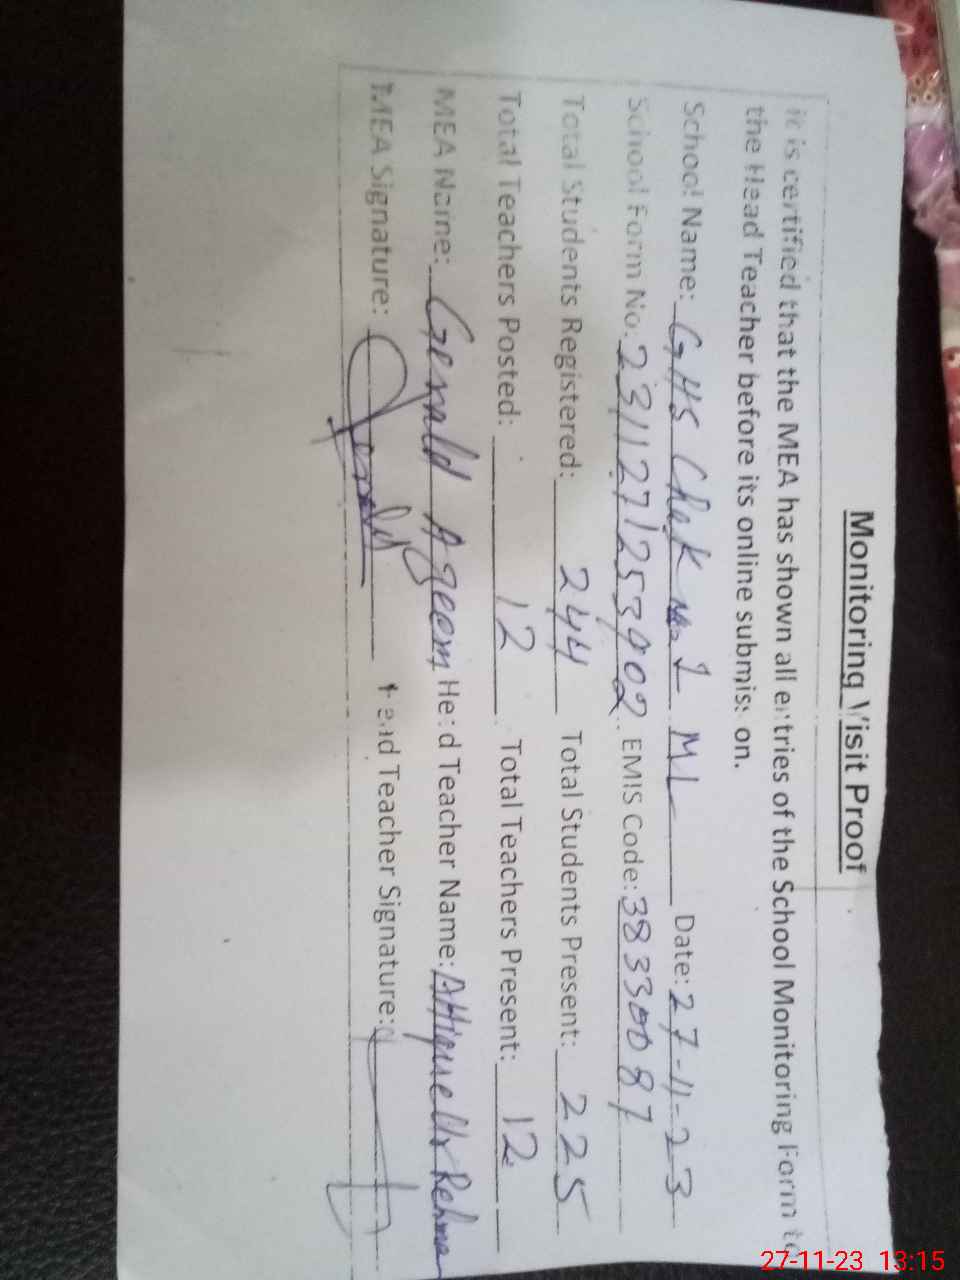 Monitoring Visit Proof
it is certified that the MEA has shown all entries of the School Monitoring Form to
the Head Teacher before its online submission.
School Name: GHS Chak No. 1 ML Date: 27-11-23
School Form No: 2311271253902 EMIS Code: 38330087
Total Students Registered: 244 Total Students Present: 225
Total Teachers Posted: 12 Total Teachers Present: 12
MEA Name: Gerald Azeem Head Teacher Name: Attique Ur Rehman
MEA Signature: Gerald Head Teacher Signature:
27-11-23 13:15